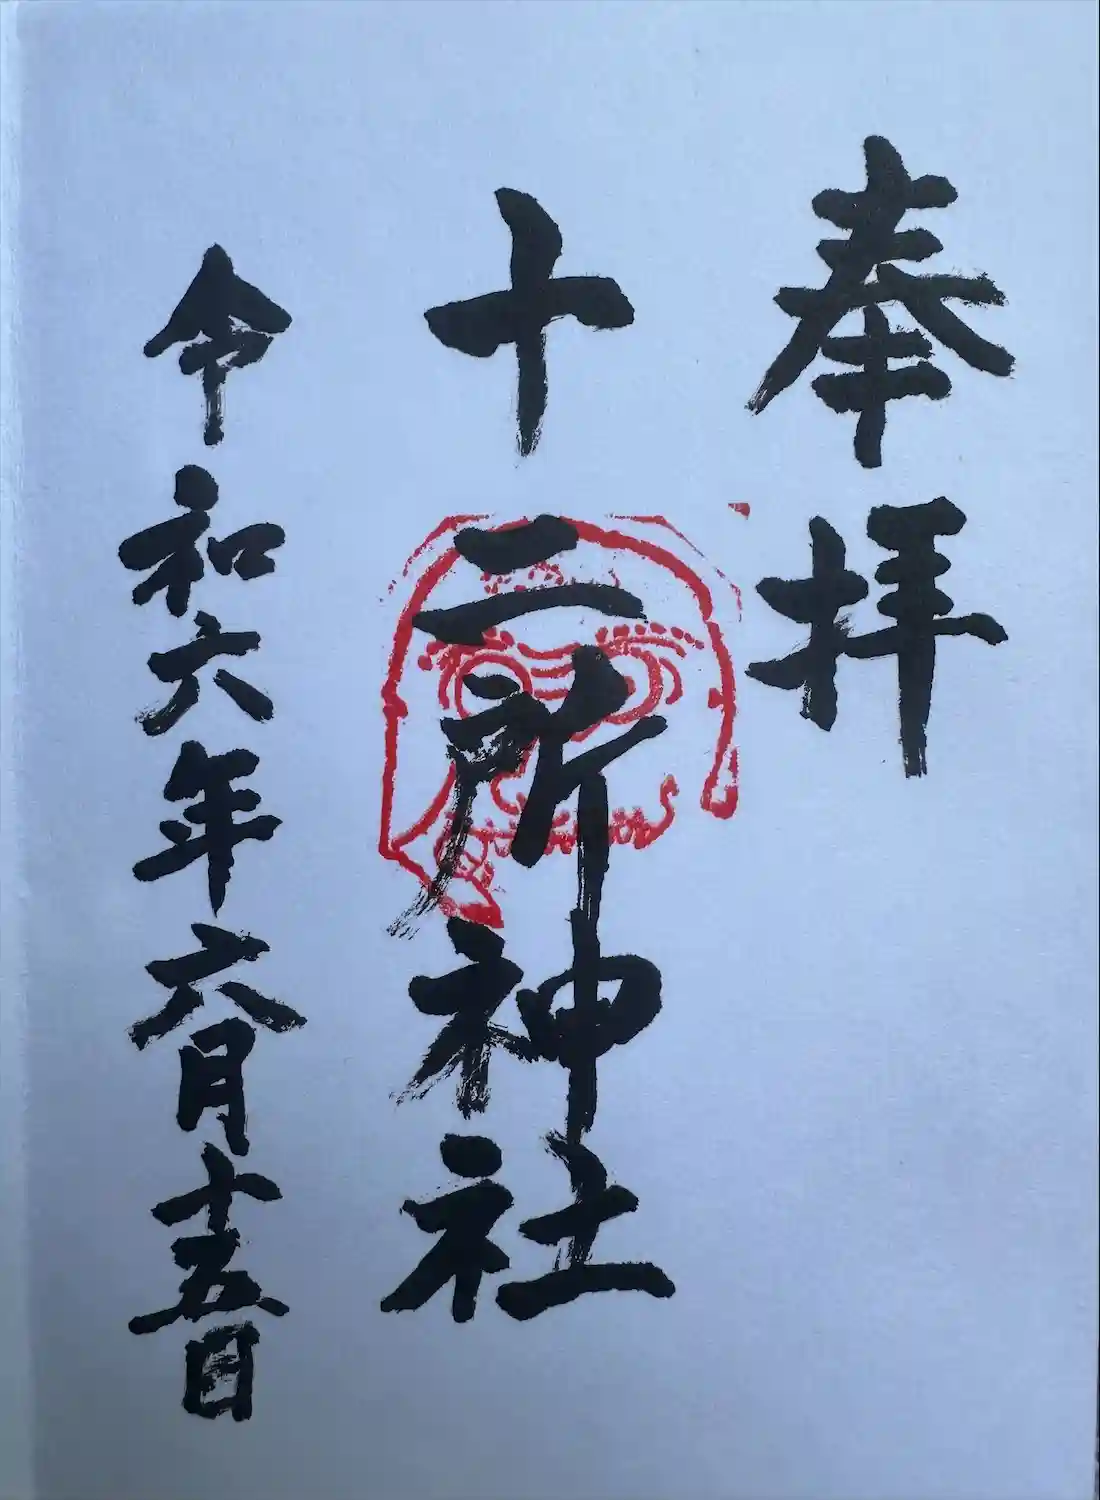 奉拝
十二所神社
令和六年六月十五日